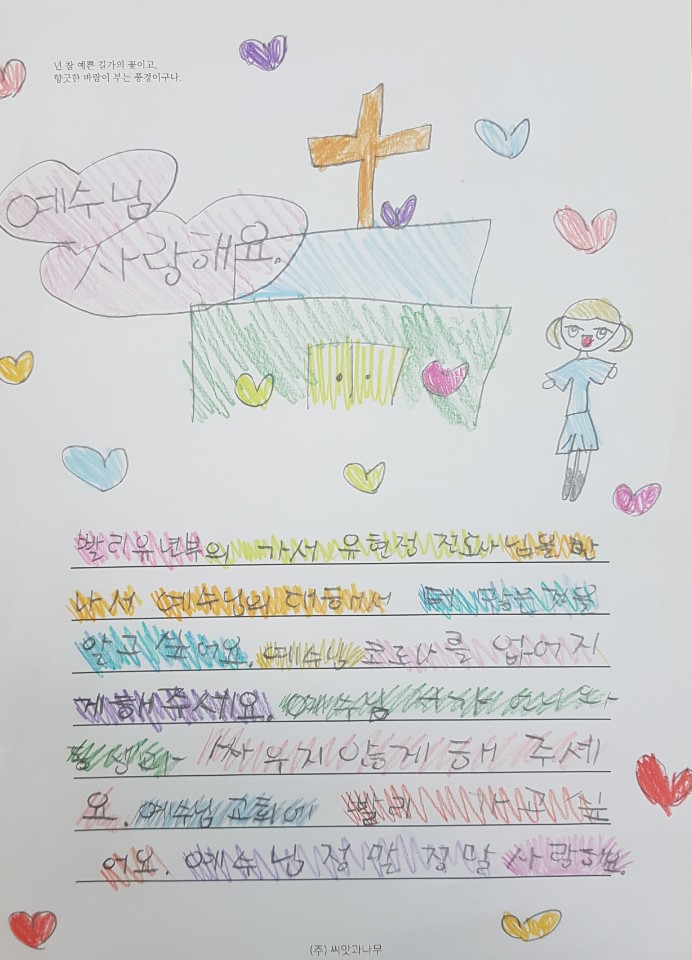 넌 참 예쁜 길가의 꽃이고,
향긋한 바람이 부는 풍경이구나.
예수님
사랑해요.
빨리유년부의 가서 유현정 전도사님을 만
나서 예수님의 대해서 더 많은 것을
알고 싶어요. 예수님 코로나를 없어지
게 해 주세요. 예수님 언니와
동생와 싸우지 않게 해 주세
요. 예수님 교회에 빨리 가고 싶
어요. 예수님 정말 정말 사랑해요.
(주) 씨앗과나무